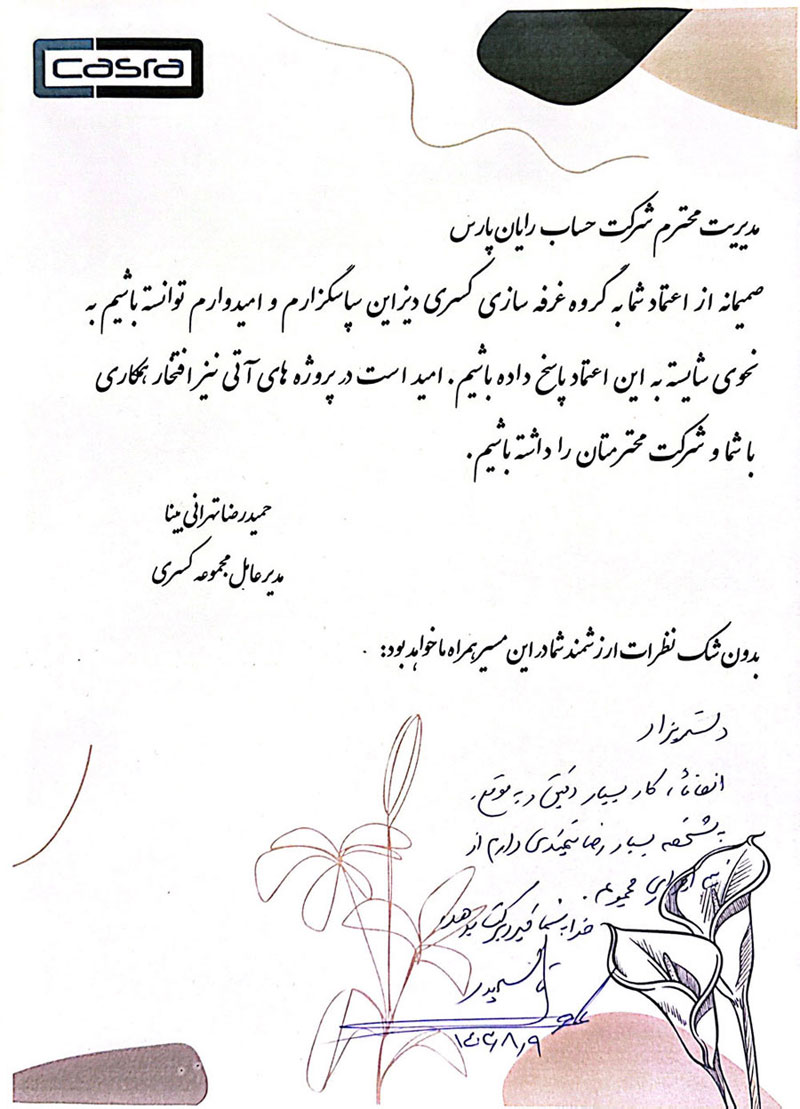 casra
مدیریت محترم شرکت حساب رایان پارس
صمیمانه از اعتماد شما به گروه غرفه سازی کسری دیزاین سپاسگزارم و امیدوارم توانسته باشیم به
نحوی شایسته به این اعتماد پاسخ داده باشیم. امید است در پروژه های آتی نیز افتخار همکاری
با شما و شرکت محترمتان را داشته باشیم.
حمیدرضا تهرانی بینا
مدیرعامل مجموعه کسری
بدون شک نظرات ارزشمند شما در این مسیر همراه ما خواهد بود:
اتفاقاً، کار بسیار دقیق و به موقع.
بشخصه بسیار رضایتمندی دارم از
مجموعه.
خدا به شما خیر و برکت بدهد